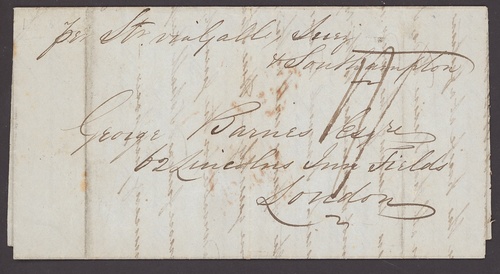 per Str via Galle Suez
& Southampton
George Barnes Esqre
62 Lincolns Inn Fields
London